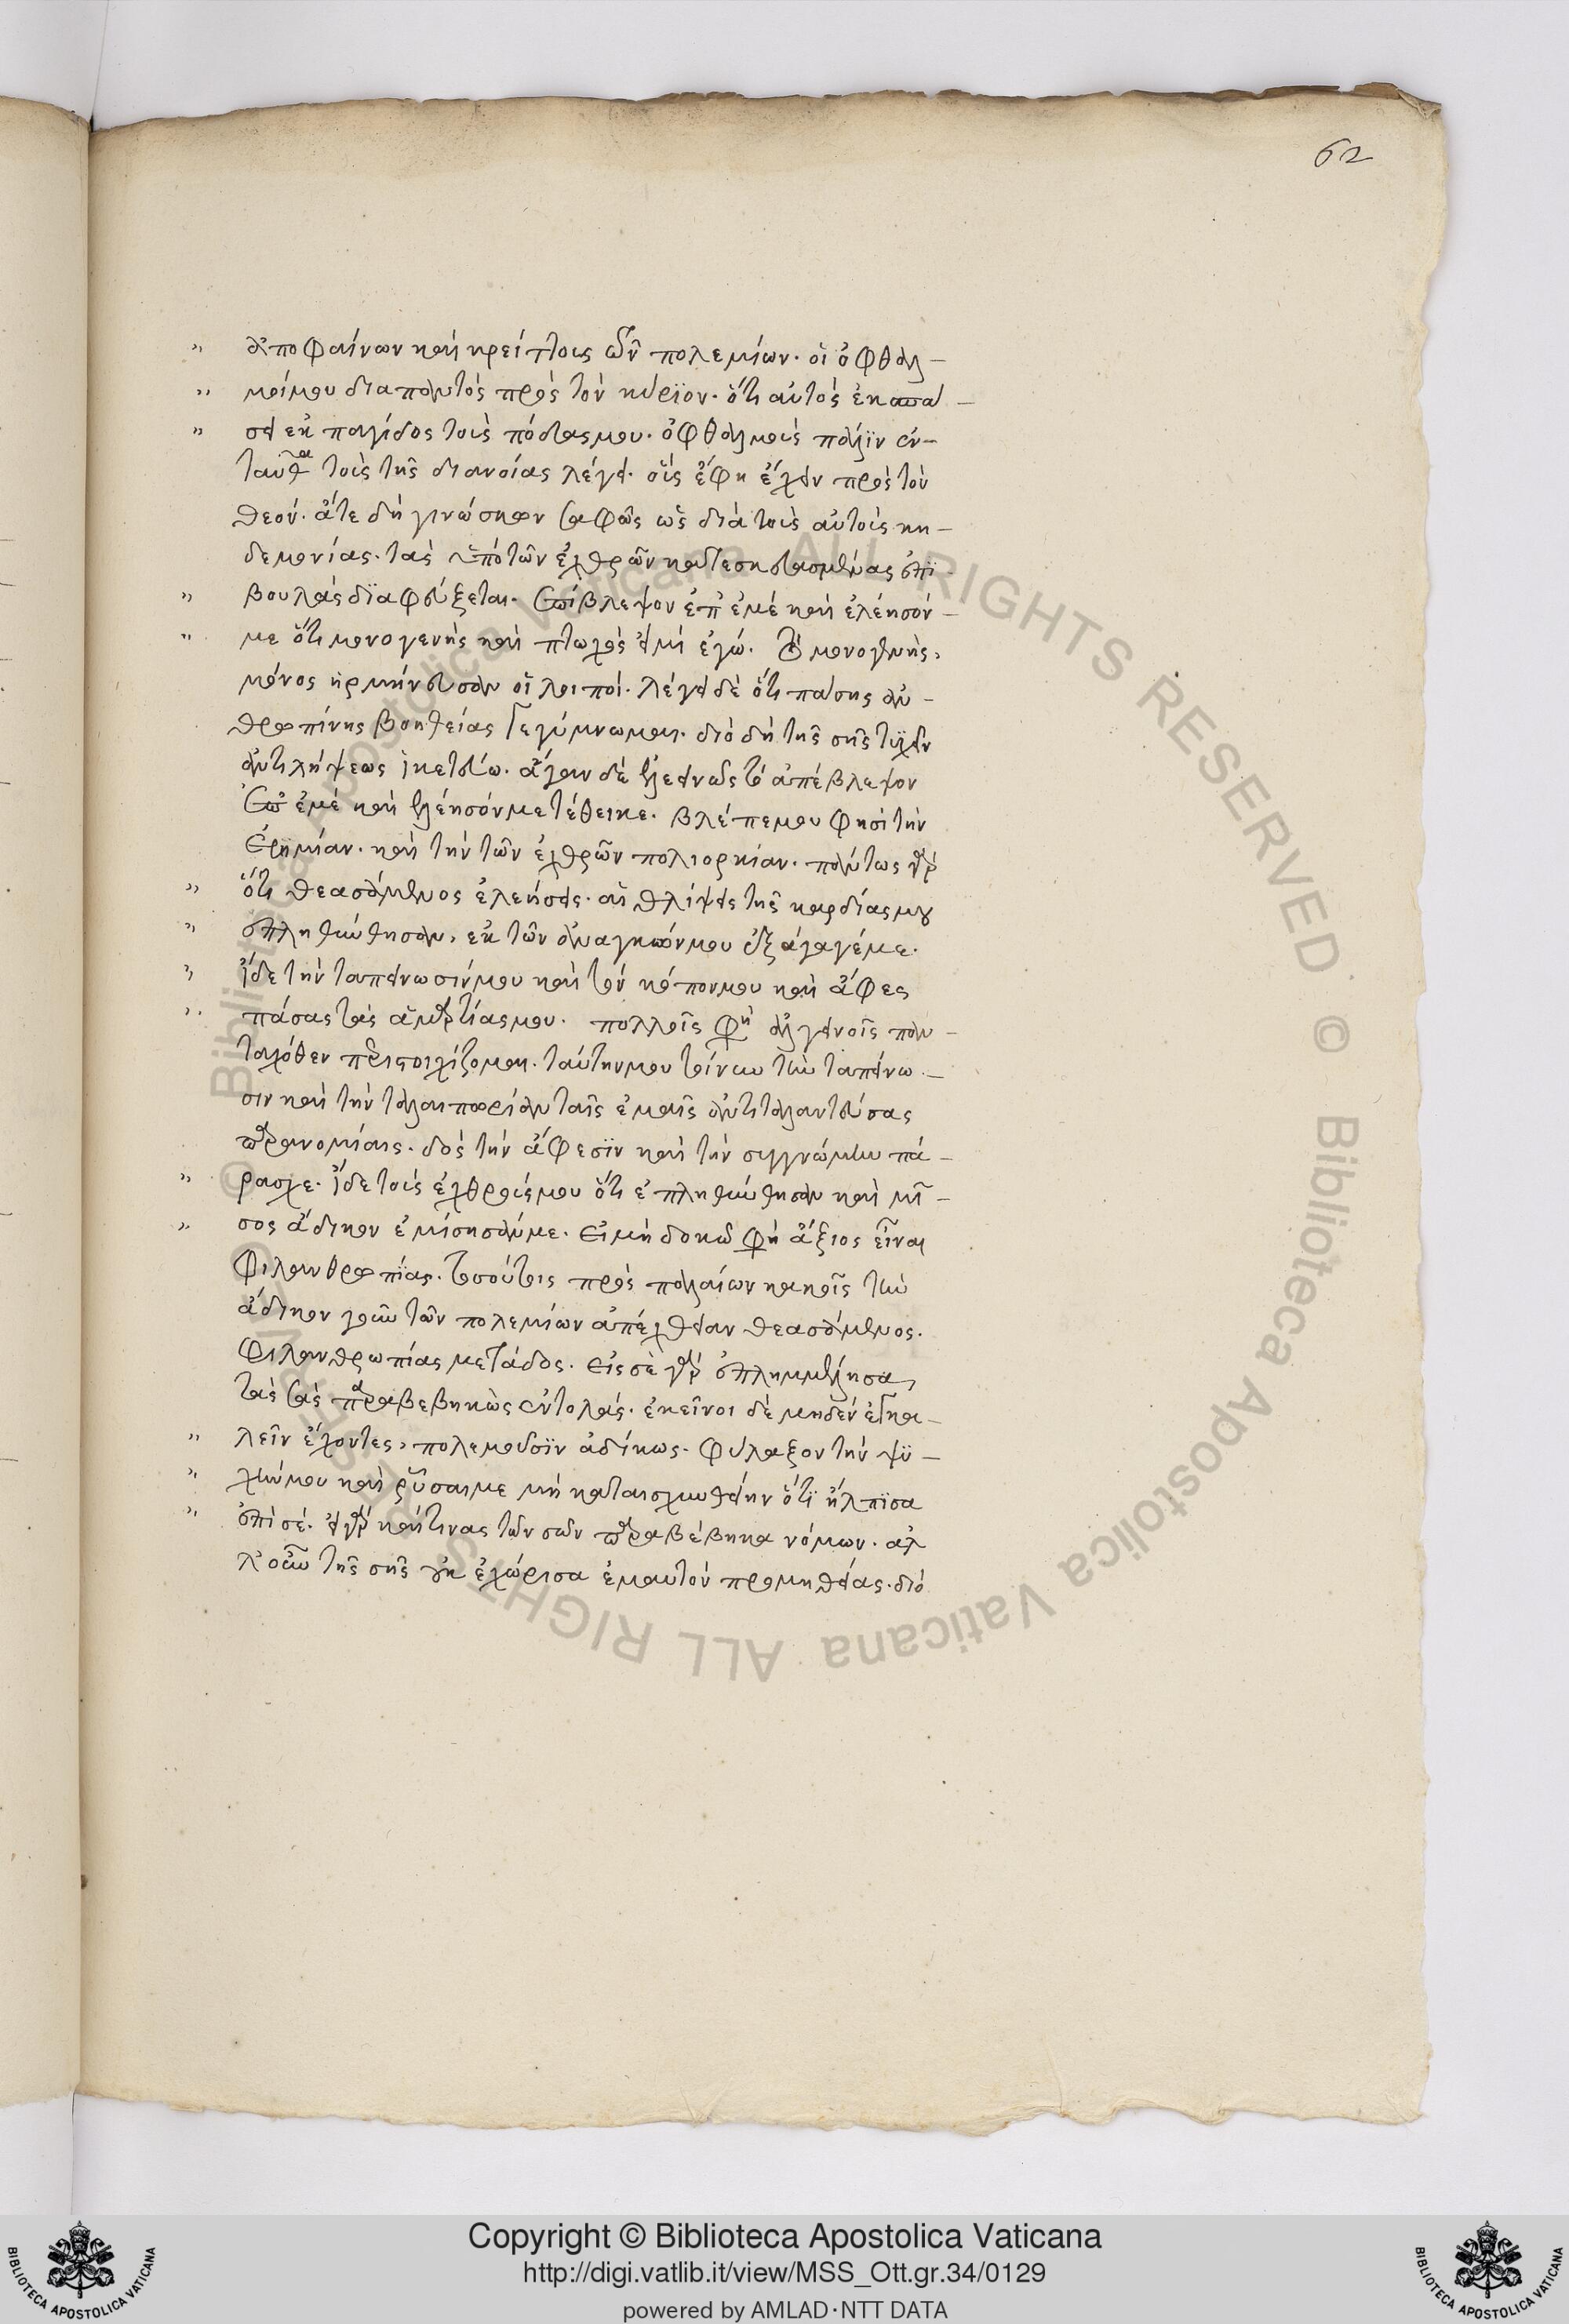 62
„ ἀποφαίνων καὶ κρείττους τῶν πολεμίων. οἱ ὀφθαλ-
„ μοί μου διαπαντὸς πρὸς τὸν κύριον. ὅτι αὐτὸς ἐκσπά-
„ σει ἐκ παγίδος τοὺς πόδας μου. ὀφθαλμοὺς πάλιν ἐν-
ταῦθα τοὺς τῆς διανοίας λέγει. οὓς ἔφη ἔχειν πρὸς τὸν
θεόν. ἅτε δὴ γινώσκων σαφῶς ὡς διὰ τῆς αὐτοῦ κη-
δεμονίας. τὰς ὑπὸ τῶν ἐχθρῶν κατεσκευασμένας ἐπι-
„ βουλὰς διαφεύξεται. ἐπίβλεψον ἐπ' ἐμὲ καὶ ἐλέησόν-
„ με ὅτι μονογενὴς καὶ πτωχὸς εἰμὶ ἐγώ. τὸ μονογενὴς,
μόνος ἡρμήνευσαν οἱ λοιποί. λέγει δὲ ὅτι πάσης ἀν-
θρωπίνης βοηθείας γεγύμνωμαι. διὸ δὴ τῆς σῆς τυχεῖν
ἀντιλήψεως ἱκετεύω. ἄγαν δὲ ἐλεεινῶς τὸ ἐπίβλεψον
ἐπ' ἐμὲ καὶ ἐλέησόν με τέθεικε. βλέπε μου φησὶ τὴν
ἐρημίαν. καὶ τὴν τῶν ἐχθρῶν πολιορκίαν. πάντως γὰρ
„ ὅτι θεασάμενος ἐλεήσεις. αἱ θλίψεις τῆς καρδίας μου
„ ἐπληθύνθησαν, ἐκ τῶν ἀναγκῶν μου ἐξάγαγέ με.
„ ἴδε τὴν ταπείνωσίν μου καὶ τὸν κόπον μου καὶ ἄφες
„ πάσας τὰς ἁμαρτίας μου. πολλοῖς φη ἀλγεινοῖς παν-
ταχόθεν περιστοιχίζομαι. ταύτην μου τοίνυν τὴν ταπείνω-
σιν καὶ τὴν ταλαιπωρίαν ταῖς ἐμαῖς ἀντιταλαντεύσας
παρανομίαις. δὸς τὴν ἄφεσιν καὶ τὴν συγγνώμην πά-
„ ρασχε. ἴδε τοὺς ἐχθρούς μου ὅτι ἐπληθύνθησαν καὶ μῖ-
„ σος ἄδικον ἐμίσησάν με. εἰ μὴ δοκῶ φη ἄξιος εἶναι
φιλανθρωπίας. τοσούτοις προσπαλαίων κακοῖς τὴν
ἄδικον γοῦν τῶν πολεμίων ἀπέχθειαν θεασάμενος.
φιλανθρωπίας μετάδος. εἰς σὲ γὰρ ἐπλημμέλησα,
τὰς σὰς παραβεβηκὼς ἐντολάς. ἐκεῖνοι δὲ μηδὲν ἐγκα-
„ λεῖν ἔχοντες, πολεμοῦσιν ἀδίκως. φύλαξον τὴν ψυ-
„ χήν μου καὶ ῥῦσαί με μὴ καταισχυνθείην ὅτι ἤλπισα
„ ἐπὶ σέ. εἰ γὰρ καί τινας τῶν σῶν παραβέβηκα νόμων. ἀλ
λ' οὖν τῆς σῆς οὐκ ἐχώρισα ἐμαυτὸν προμηθείας. διὸ
Copyright © Biblioteca Apostolica Vaticana
http://digi.vatlib.it/view/MSS_Ott.gr.34/0129
powered by AMLAD·NTT DATA
© Biblioteca Apostolica Vaticana ALL RIGHTS RESERVED
© Biblioteca Apostolica Vaticana ALL RIGHTS RESERVED
BIBLIOTECA APOSTOLICA VATICANA
BIBLIOTECA APOSTOLICA VATICANA